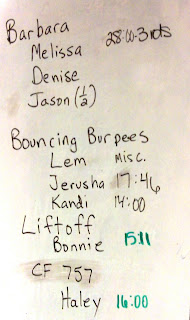 Barbara
Melissa 28:00-3rds
Denise
Jason (1/2)
Bouncing Burpees
Lem Misc.
Jerusha 17:46
Kandi 14:00
Liftoff
Bonnie 15:11
CF 757
Haley 16:00